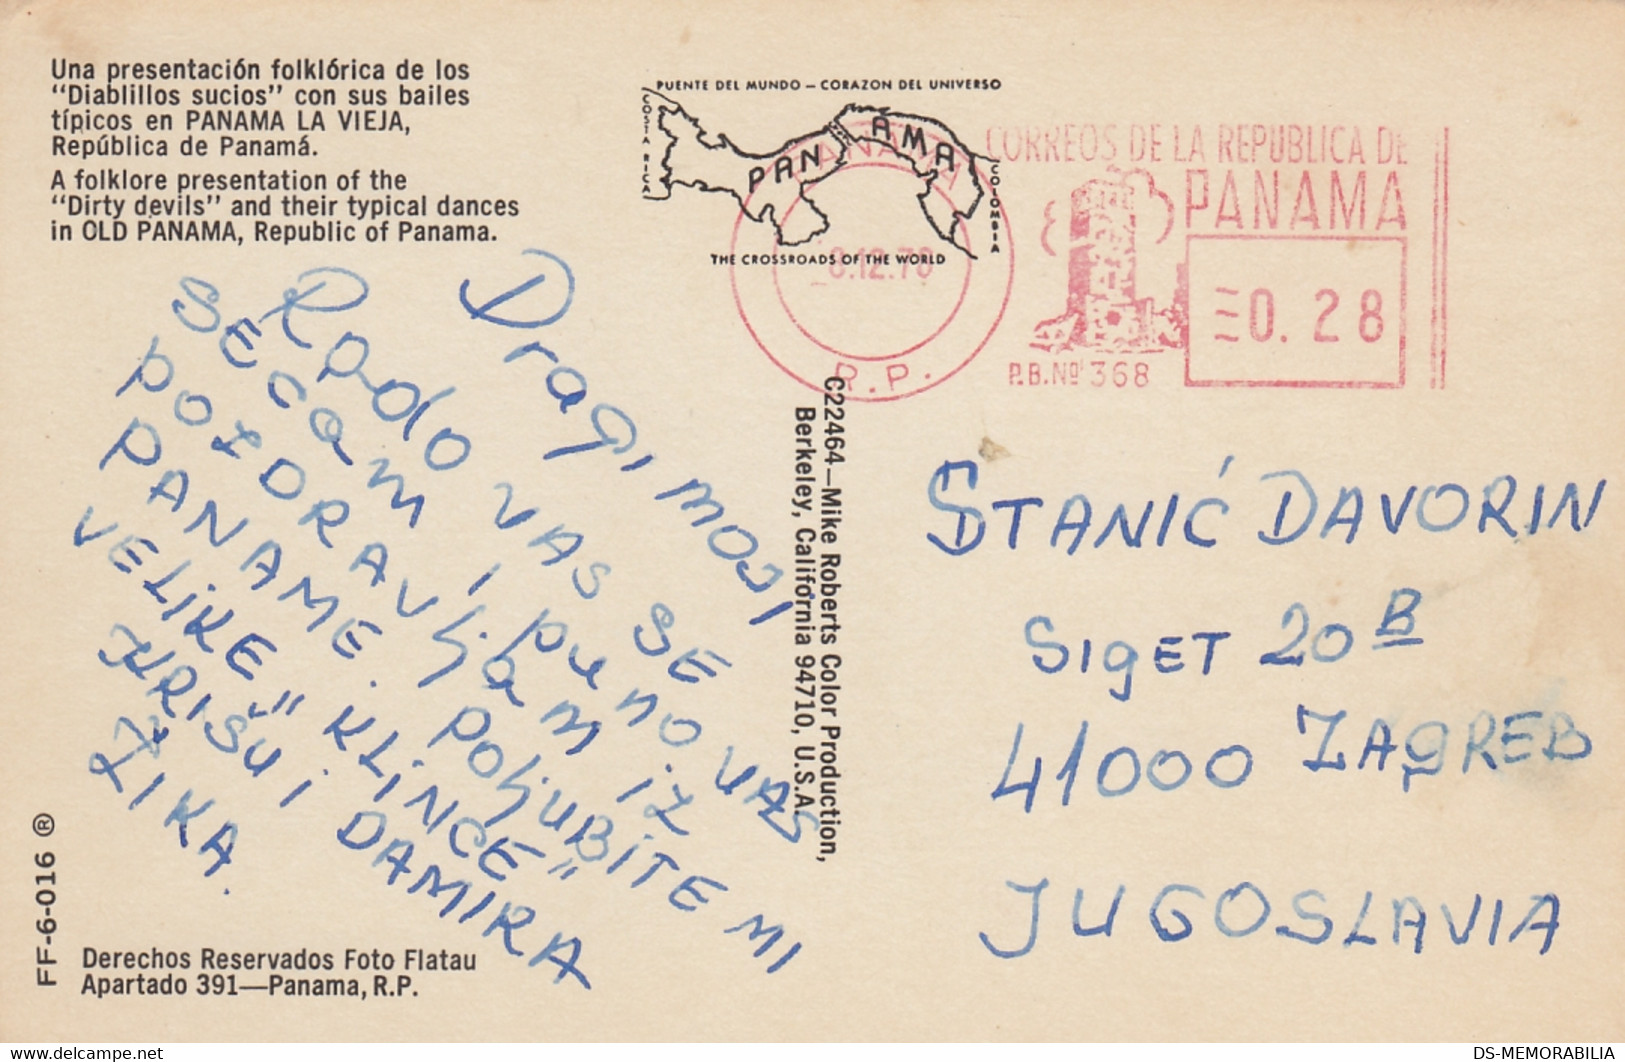 Una presentación folklórica de los
"Diablillos sucios" con sus bailes
típicos en PANAMA LA VIEJA,
República de Panamá.
A folklore presentation of the
"Dirty devils" and their typical dances
in OLD PANAMA, Republic of Panama.
PUENTE DEL MUNDO – CORAZON DEL UNIVERSO
COSTA RICA
PANAMA
COLOMBIA
THE CROSSROADS OF THE WORLD
PANAMA
8.12.78
R.P.
CORREOS DE LA REPUBLICA DE
PANAMA
0.28
P.B.Nº 368
Dragi moji
Rado vas se
SEcam i puno vas
POZDRAVLjam iz
PANAME. POLjUBITE MI
VELIKE "KLINCE"
KRIŠU i DAMIRA
ŽIKA.
C22464—Mike Roberts Color Production,
Berkeley, California 94710, U.S.A.
STANIĆ DAVORIN
SIGET 20 B
41000 ZAGREB
JUGOSLAVIA
FF-6-016 ®
Derechos Reservados Foto Flatau
Apartado 391—Panama, R.P.
DS-MEMORABILIA